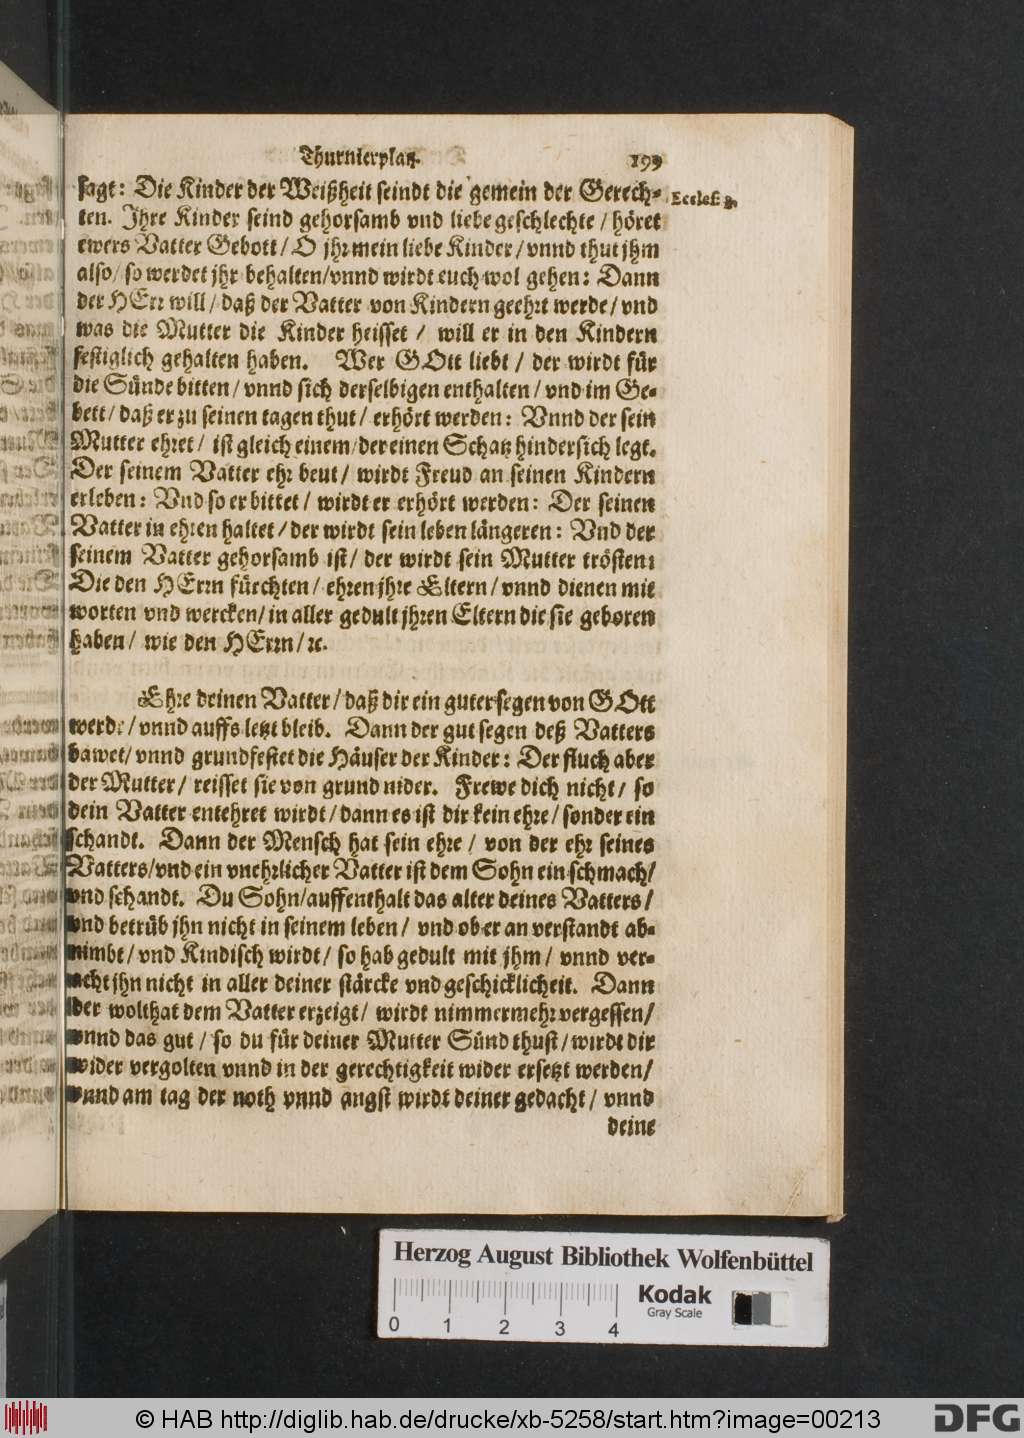 Thurnierplatz. 199
sagt: Die Kinder der Weißheit seindt die gemein der Gerech-
Eccles. 3.
ten. Ihre Kinder seind gehorsamb vnd liebe geschlechte / höret
ewers Vatter Gebott / O jhr mein liebe Kinder / vnnd thut jhm
also / so werdet jhr behalten / vnnd wirdt euch wol gehen: Dann
der HErr will / daß der Vatter von Kindern geehrt werde / vnd
was die Mutter die Kinder heisset / will er in den Kindern
festiglich gehalten haben. Wer GOtt liebt / der wirdt für
die Sünde bitten / vnnd sich derselbigen enthalten / vnd im Ge-
bett / daß er zu seinen tagen thut / erhört werden: Vnnd der sein
Mutter ehret / ist gleich einem / der einen Schatz hindersich legt.
Der seinem Vatter ehr beut / wirdt Freud an seinen Kindern
erleben: Vnd so er bittet / wirdt er erhört werden: Der seinen
Vatter in ehren haltet / der wirdt sein leben längeren: Vnd der
seinem Vatter gehorsamb ist / der wirdt sein Mutter trösten:
Die den HErrn fürchten / ehren jhre Eltern / vnnd dienen mit
worten vnd wercken / in aller gedult jhren Eltern die sie geboren
haben / wie den HErrn / ꝛc.
Ehre deinen Vatter / daß dir ein guter segen von GOtt
werde / vnnd auffs letzt bleib. Dann der gut segen deß Vatters
bawet / vnnd grundfestet die Häuser der Kinder: Der fluch aber
der Mutter / reisset sie von grund nider. Frewe dich nicht / so
dein Vatter entehret wirdt / dann es ist dir kein ehre / sonder ein
schandt. Dann der Mensch hat sein ehre / von der ehr seines
Vatters / vnd ein vnehrlicher Vatter ist dem Sohn ein schmach /
vnd schandt. Du Sohn / auffenthalt das alter deines Vatters /
vnd betrüb jhn nicht in seinem leben / vnd ob er an verstandt ab-
nimbt / vnd Kindisch wirdt / so hab gedult mit jhm / vnnd ver-
acht jhn nicht in aller deiner stärcke vnd geschicklicheit. Dann
der wolthat dem Vatter erzeigt / wirdt nimmermehr vergessen /
vnnd das gut / so du für deiner Mutter Sünd thust / wirdt dir
wider vergolten vnnd in der gerechtigkeit wider ersetzt werden /
vnnd am tag der noth vnnd angst wirdt deiner gedacht / vnnd
deine
Herzog August Bibliothek Wolfenbüttel
0 1 2 3 4
Kodak
Gray Scale
© HAB http://diglib.hab.de/drucke/xb-5258/start.htm?image=00213
DFG